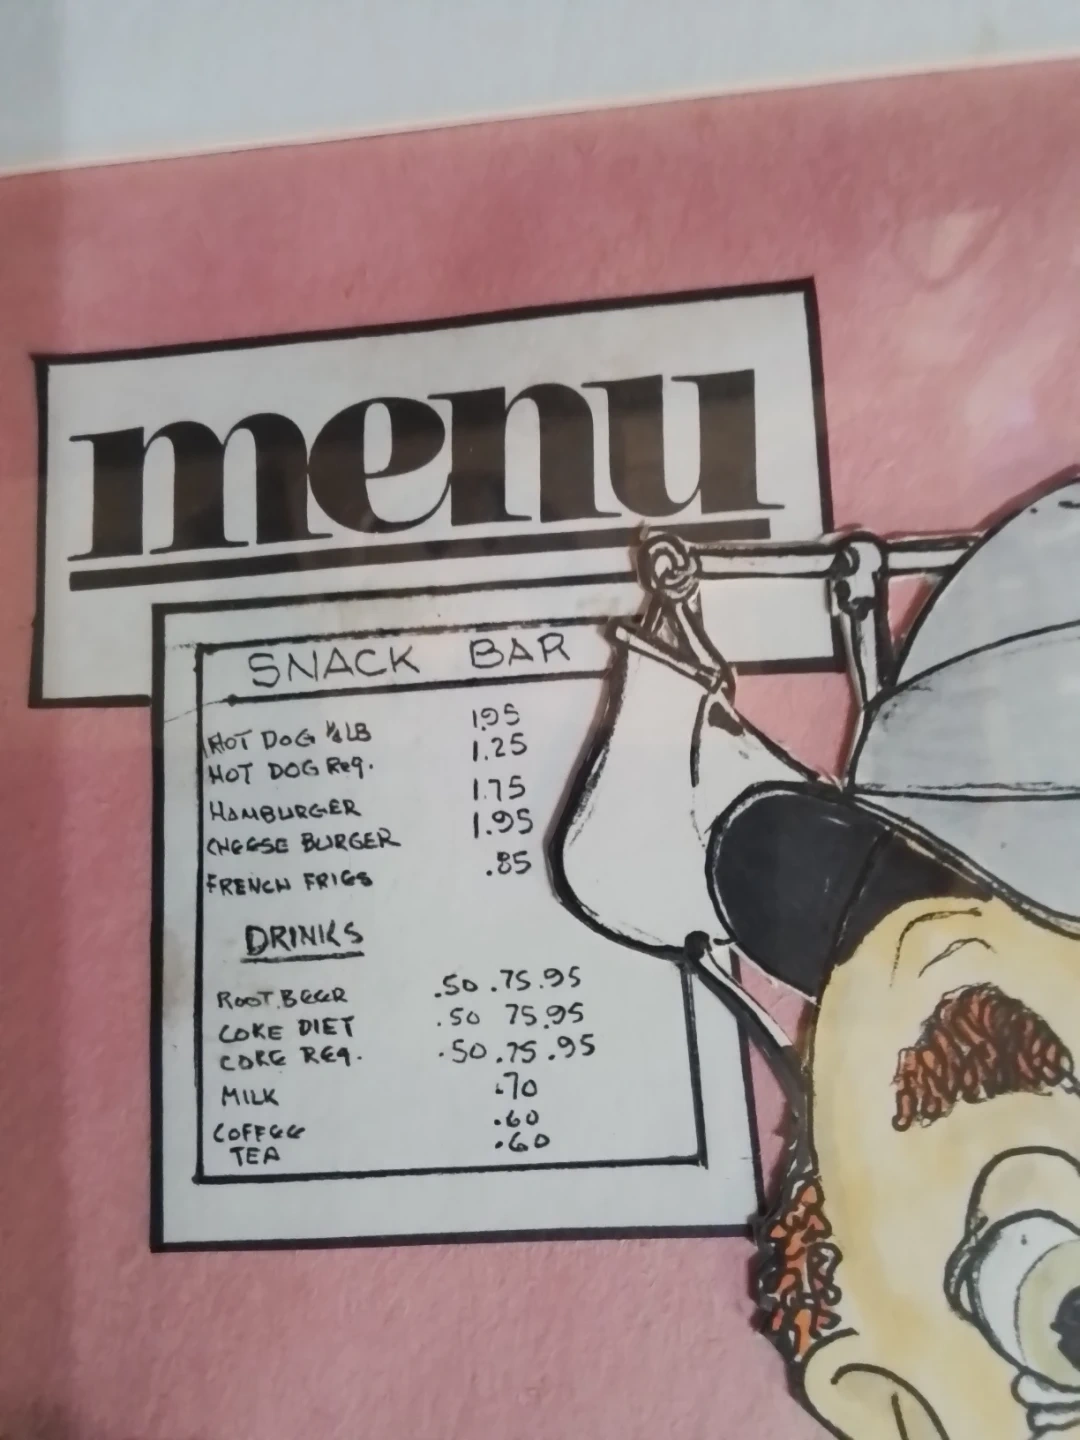 menu
SNACK BAR
HOT DOG ¼ LB 1.95
HOT DOG Reg. 1.25
HAMBURGER 1.75
CHEESE BURGER 1.95
FRENCH FRIES .85
DRINKS
ROOT.BEER .50 .75 .95
COKE DIET .50 75.95
COKE REG. .50 .75 .95
MILK .70
COFFEE .60
TEA .60